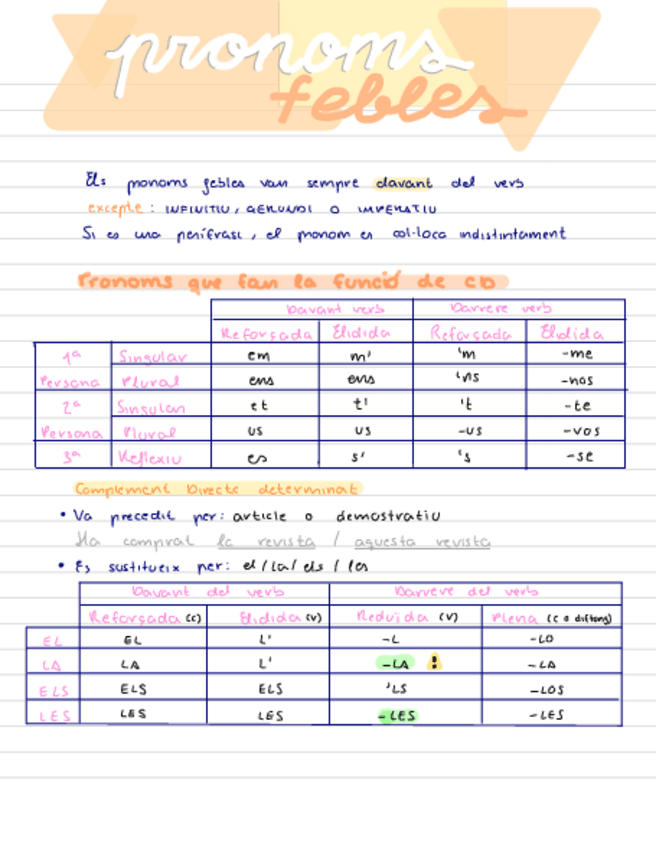 pronoms
febles
Els pronoms febles van sempre davant del verb
excepte: INFINITIU, GERUNDI O IMPERATIU
Si es una perífrasi, el pronom es col·loca indistintament
Pronoms que fan la funció de CD
Davant verb Darrere verb
Reforçada Elidida Reforçada Elidida
1ª Singular em m' 'm -me
Persona Plural ens ens 'ns -nos
2ª Singular et t' 't -te
Persona Plural us us -us -vos
3ª Reflexiu es s' 's -se
Complement Directe determinat
• Va precedit per: article o demostratiu
Ha comprat la revista / aquesta revista
• Es sustitueix per: el / la / els / les
Davant del verb Darrere del verb
Reforçada (C) Elidida (V) Reduïda (V) Plena (C o diftong)
EL EL L' -L -LO
LA LA L' -LA ! -LA
ELS ELS ELS 'LS -LOS
LES LES LES -LES -LES